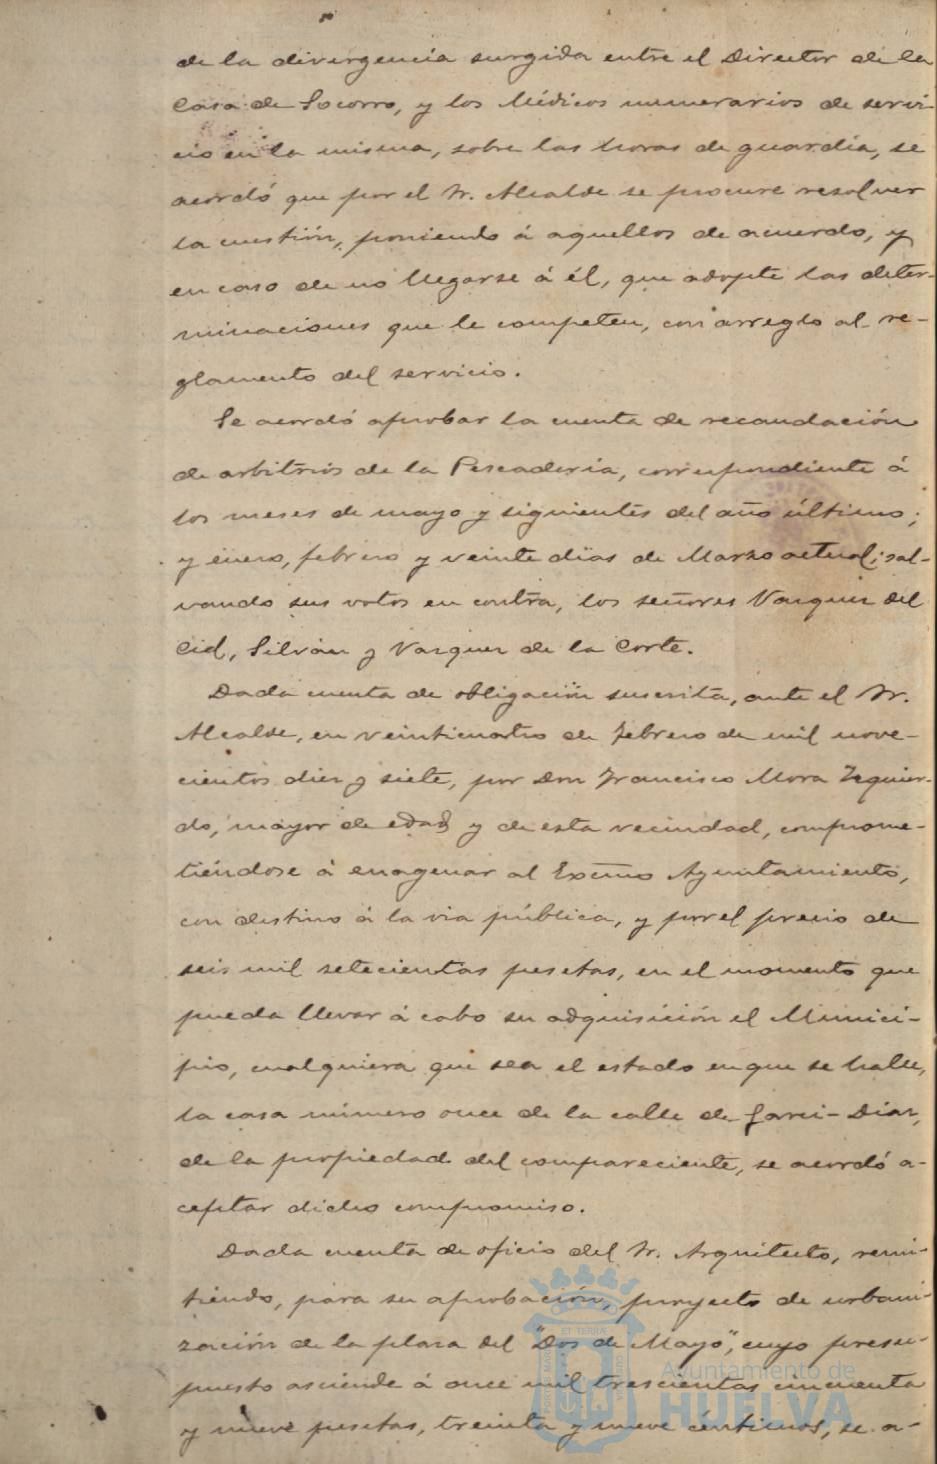 de la divergencia surgida entre el Director de la
Casa de Socorro, y los Médicos numerarios de servi-
cio en la misma, sobre las horas de guardia, se
acordó que por el Sr. Alcalde se procure resolver
la cuestión, poniendo á aquellos de acuerdo, y
en caso de no llegarse á él, que adopte las deter-
minaciones que le competen, con arreglo al re-
glamento del servicio.
Se acordó aprobar la cuenta de recaudación
de arbitrios de la Pescaderia, correspondiente á
los meses de mayo y siguientes del año último;
y enero, febrero y veinte dias de Marzo actual; sal-
vando sus votos en contra, los señores Vazquez del
Cid, Silván y Vazquez de la Corte.
Dada cuenta de obligación suscrita, ante el Sr.
Alcalde, en veinticuatro de febrero de mil nove-
cientos diez y siete, por Don Francisco Mora Izquier-
do, mayor de edad y de esta vecindad, comprome-
tiéndose á enagenar al Excmo Ayuntamiento,
con destino á la via pública, y por el precio de
seis mil setecientas pesetas, en el momento que
pueda llevar á cabo su adquisición el Munici-
pio, cualquiera que sea el estado en que se halle,
la casa número once de la calle de Garci-Diaz,
de la propiedad del compareciente, se acordó a-
ceptar dicho compromiso.
Dada cuenta de oficio del Sr. Arquitecto, remi-
tiendo, para su aprobación, proyecto de urbani-
zación de la plaza del "Dos de Mayo", cuyo presu-
puesto asciende á once mil trescientas cincuenta
y nueve pesetas, treinta y nueve céntimos, se a-
Ayuntamiento de
HUELVA